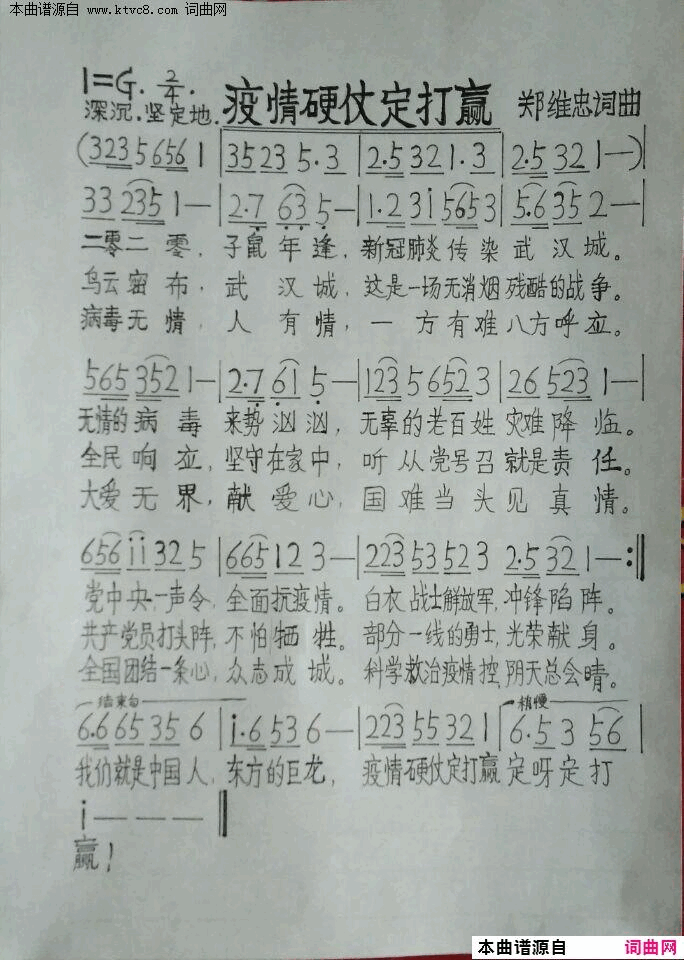 本曲谱源自 www.ktvc8.com 词曲网
1=G. 2/4.
深沉.坚定地. 疫情硬仗定打赢 郑维忠词曲
(3235656 1 | 3523 5·3 | 2·5 32 1·3 | 2·5 32 1—)|
33 235 1— | 2·7 63 5— | 1·2 31 565 3 | 5·6 35 2— |
二零二零,子鼠年逢,新冠肺炎传染武汉城。
乌云密布,武汉城,这是一场无消烟残酷的战争。
病毒无情,人有情,一方有难八方呼应。
565 352 1— | 2·7 61 5— | 123 5 652 3 | 26 523 1— |
无情的病毒来势汹汹,无辜的老百姓灾难降临。
全民响应,坚守在家中,听从党号召就是责任。
大爱无界,献爱心,国难当头见真情。
656 ii 32 5 | 665 12 3— | 223 53 52 3 2·5 32 1— :‖
党中央一声令,全面抗疫情。白衣战士解放军,冲锋陷阵。
共产党员打头阵,不怕牺牲。部分一线的勇士,光荣献身。
全国团结一条心,众志成城。科学救治疫情控,阴天总会晴。
结束句 稍慢
6·6 65 35 6 | i·6 53 6— | 223 55 32 1 | 6·5 3 56 |
我们就是中国人,东方的巨龙,疫情硬仗定打赢定呀定打
i — — — ‖
赢!
本曲谱源自 词曲网